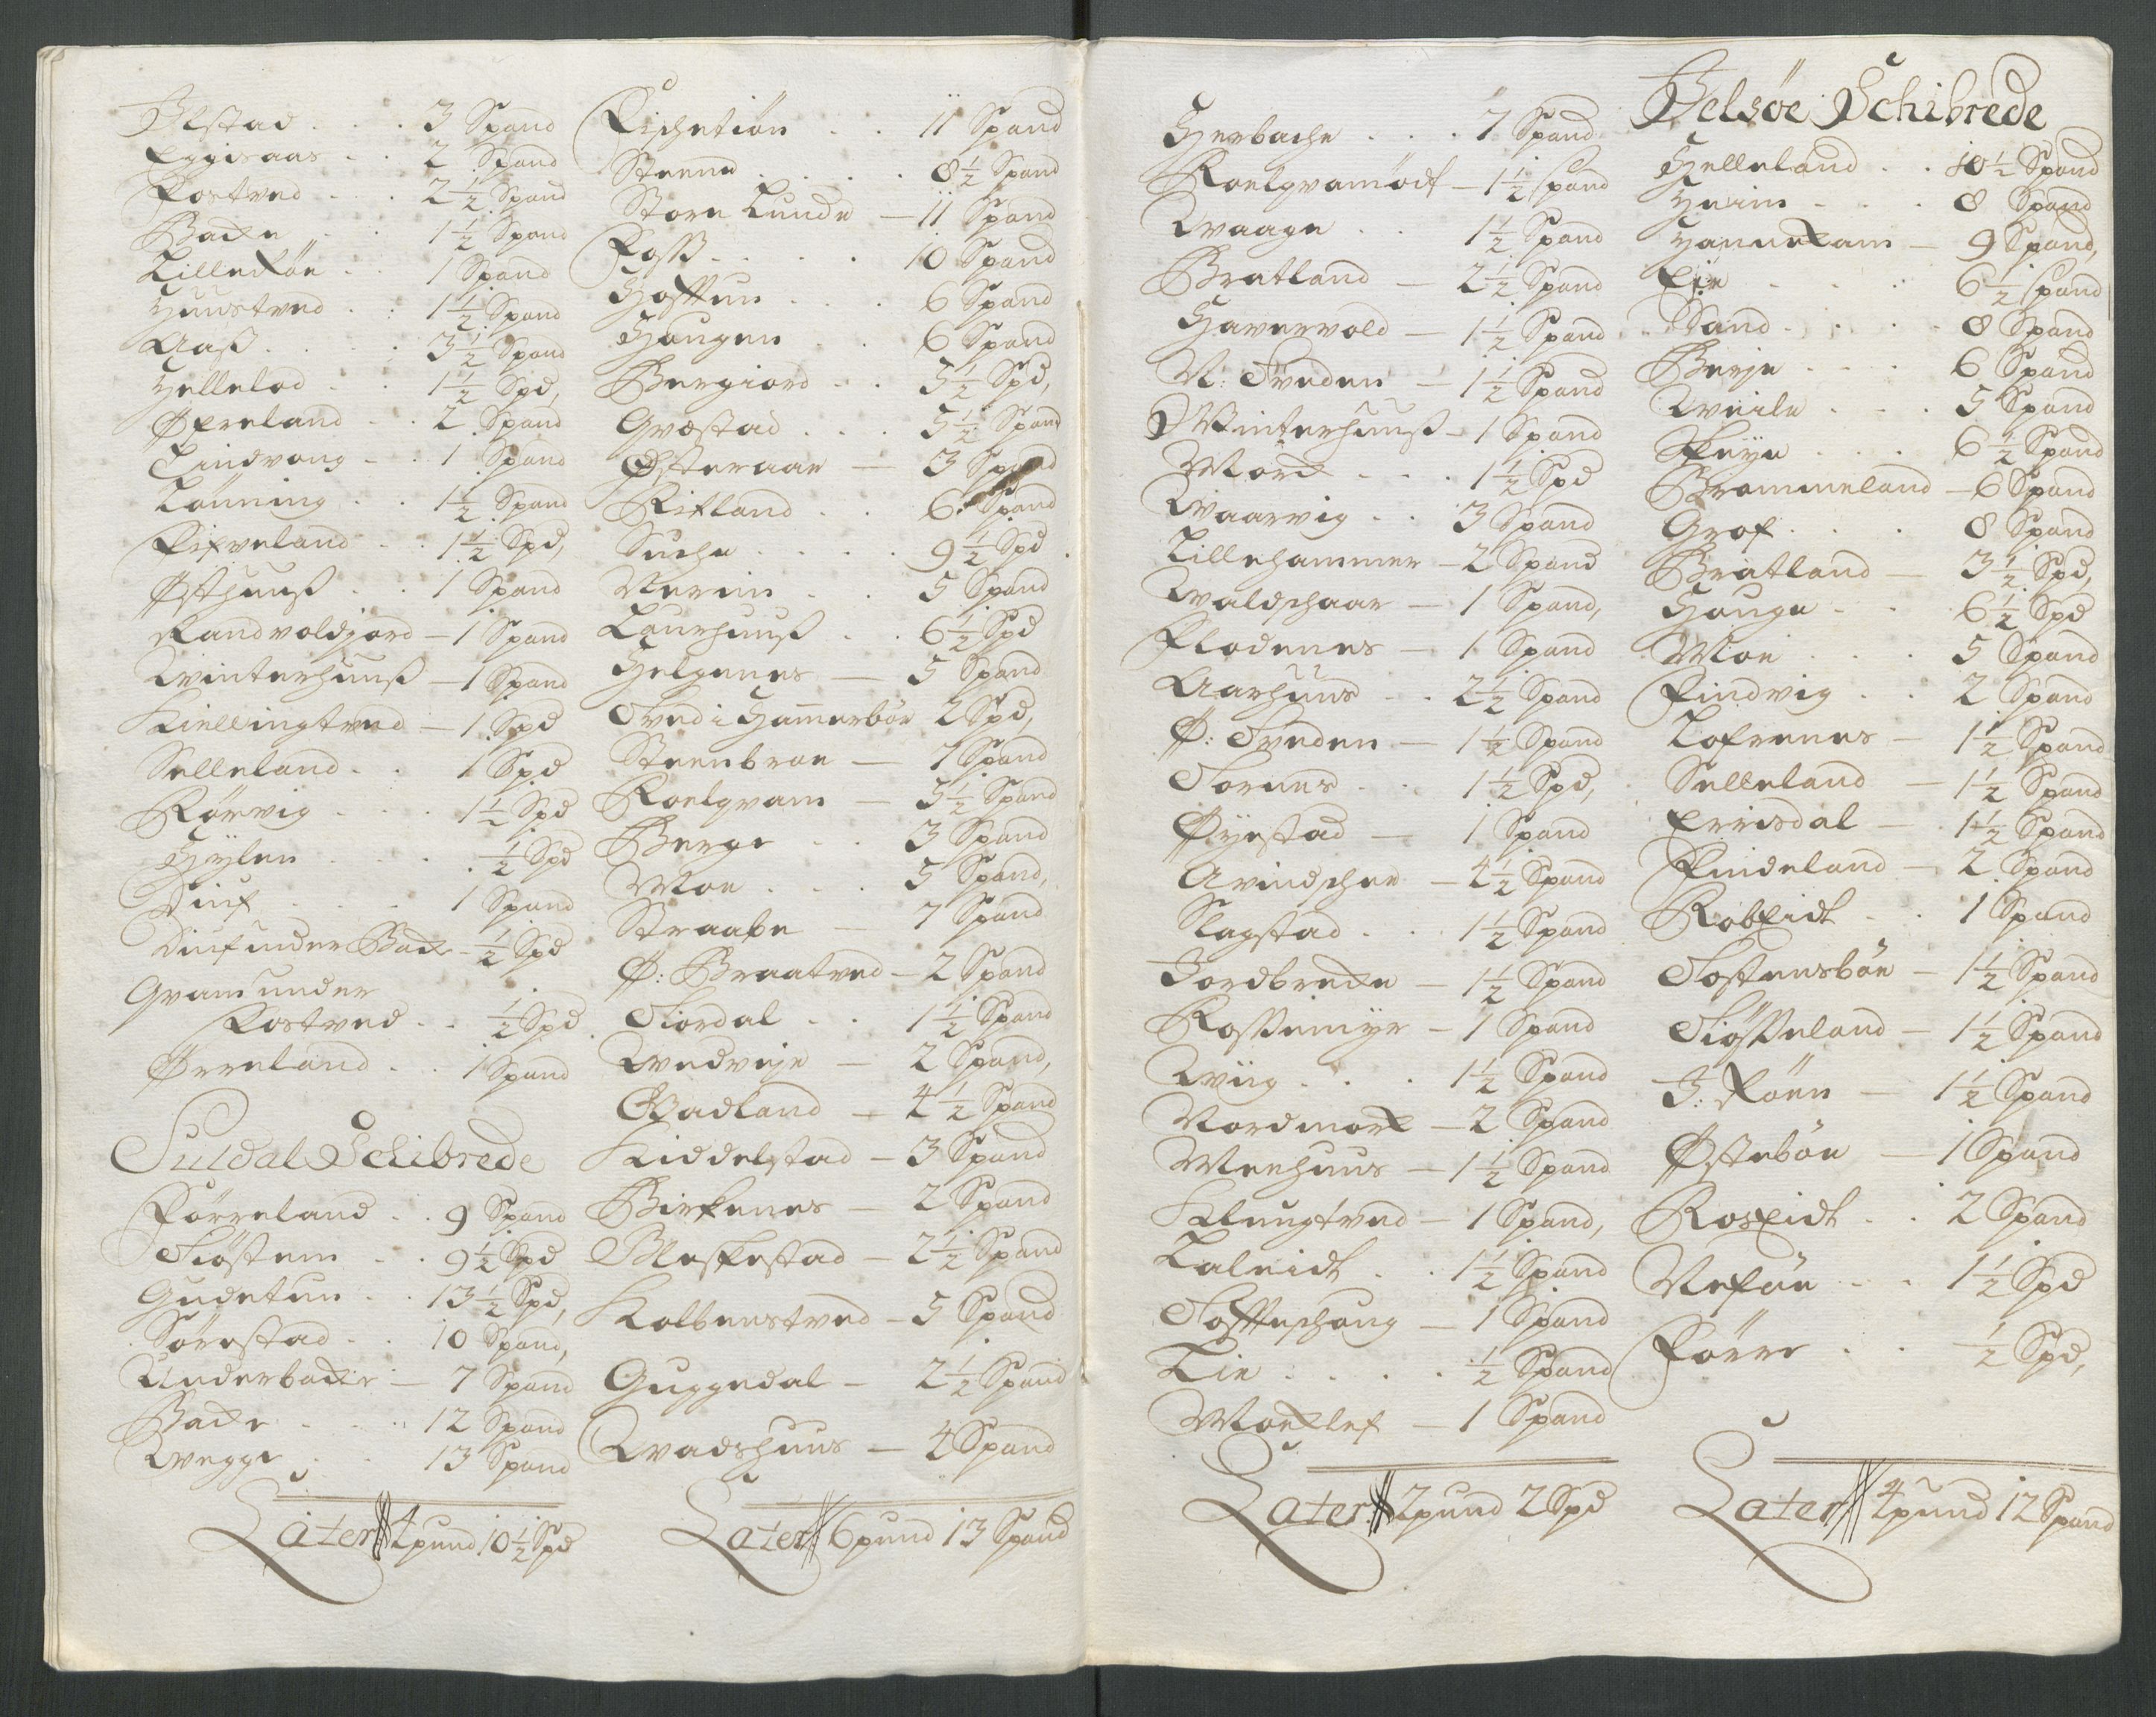 Ølstad . . . 3 Spand
Eggisaas . . 2 Spand
Fostved . . . 2½ Spand
Backe . . 1½ Spand
Lilledøe . . 1 Spand
Huustved . . 1½ Spand
Aass . . . . 3½ Spand
Helleloed . . 1½ Spd,
Øfreland . . 2 Spand
Lindvang . . 1 Spand
Lønning . . 1½ Spand
Fifveland . . 1½ Spd,
Østhuuss . . 1 Spand
Randvoldgord – 1 Spand
Winterhuuss – 1 Spand
Kiellingtved – 1 Spd
Selleland . . 1 Spd
Rørvig . . . 1½ Spd
Hylen . . . . ½ Spd
Diuf . . . 1 Spand
Diuf under Backe – ½ Spd
Qvam under
Fostved . . ½ Spd
Ørreland . . 1 Spand
Suldal Schibrede
Førreland . . 9 Spand
Siøstem . . 9½ Spd
Gudetun . . 13½ Spd,
Sørestad . . 10 Spand,
Underbacke – 7 Spand
Backe . . . 12 Spand
Wegge . . 13 Spand
Later 4 pund 10½ Spd
Fischetiøn . . 11 Spand
Steene . . . . 8½ Spand
Store Lunde – 11 Spand
Foss . . . . 10 Spand
Hoftun . . . 6 Spand
Haugen . . 6 Spand
Bergiord . . 5½ Spd,
Qvæstad . . . 5½ Spand
Østeraae – 3 Spand
Ritland . . 6 Spand
Suche . . . . 9½ Spd
Nerim . . 5 Spand
Laurhuuss . . 6½ Spd
Helgenes – 5 Spand
Tved i Hamerbøe 2 Spd,
Steenbroe – 7 Spand
Roelqvam – 5½ Spand
Berge . . 3 Spand
Moe . . . 5 Spand,
Straabe – 7 Spand
Ø: Braatved – 2 Spand
Fiordal . . 1½ Spand
Wedveje – 2 Spand,
Gadland – 4½ Spand
Kiddelstad – 3 Spand
Birkenes – 2 Spand
Bleskestad – 2½ Spand
Kolbenstved – 5 Spand
Guggedal – 2½ Spand
Wadshuus – 4 Spand
Later 6 pund 13 Spand
Herbache . . . 7 Spand
Roelqvamødt – 1½ Spand
Waage . . 1½ Spand
Bratland – 2½ Spand
Havervold – 1½ Spand
N: Tveden – 1½ Spand
Winterhuuss – 1 Spand
Morck . . . 1½ Spd
Waarvig . . 3 Spand
Lillehammer – 2 Spand
Waldschaar – 1 Spand,
Flodenes – 1 Spand
Aarhuus . . 2½ Spand
Ø: Tveden – 1½ Spand
Fornes . . 1½ Spd,
Øyestad – 1 Spand
Qvindschee – 4½ Spand
Slagstad . . 1½ Spand
Jordbrecke – 1½ Spand
Rossemyr – 1 Spand
Wiig . . . 1½ Spand
Nordmorck – 2 Spand
Meehuus – 1½ Spand
Klungtved – 1 Spand,
Laleidt . . 1½ Spand
Tofteschoug – 1 Spand
Lie . . . . ½ Spand
Mocklef – 1 Spand
Later 2 pund 2 Spd
Jelsøe Schibrede
Helleland . . 10½ Spand
Heim . . . 8 Spand
Hannekam – 9 Spand,
Eje . . . 6½ Spand
Sand . . . . 8 Spand
Berje . . . . 6 Spand
Weile . . . 5 Spand
Skeye . . . 6½ Spand
Brommeland – 6 Spand
Grof . . . 8 Spand
Bratland – 3½ Spd,
Hauge . . 6½ Spd
Moe . . . 5 Spand
Findvig . . 2 Spand
Lofrenes – 1½ Spand
Selleland – 1½ Spand
Errisdal – 1½ Spand
Findeland – 2 Spand
Robseidt . . 1 Spand
Tostensbøe – 1½ Spand
Tiøsseland – 1½ Spand
I: Køen – 1½ Spand
Østebøe – 1 Spand
Roseidt . . 2 Spand
Nesøe . . . 1½ Spd
Førre . . ½ Spd,
Later 4 pund 12 Spand